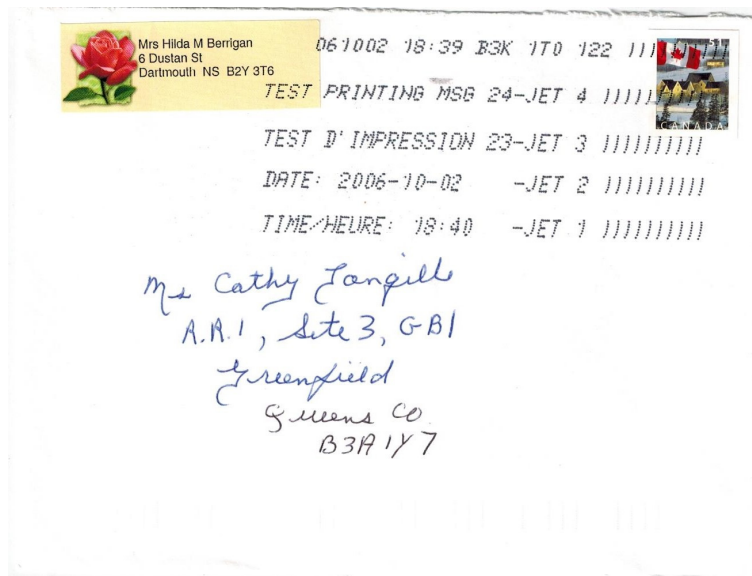 Mrs Hilda M Berrigan
6 Dustan St
Dartmouth NS B2Y 3T6
061002 18:39 B3K 1T0 122
51
CANADA
TEST PRINTING MSG 24-JET 4
TEST D'IMPRESSION 23-JET 3
DATE: 2006-10-02 -JET 2
TIME/HEURE: 18:40 -JET 1
Ms Cathy Langille
R.R.1, Site 3, GB1
Greenfield
Queens Co
B3A 1Y7